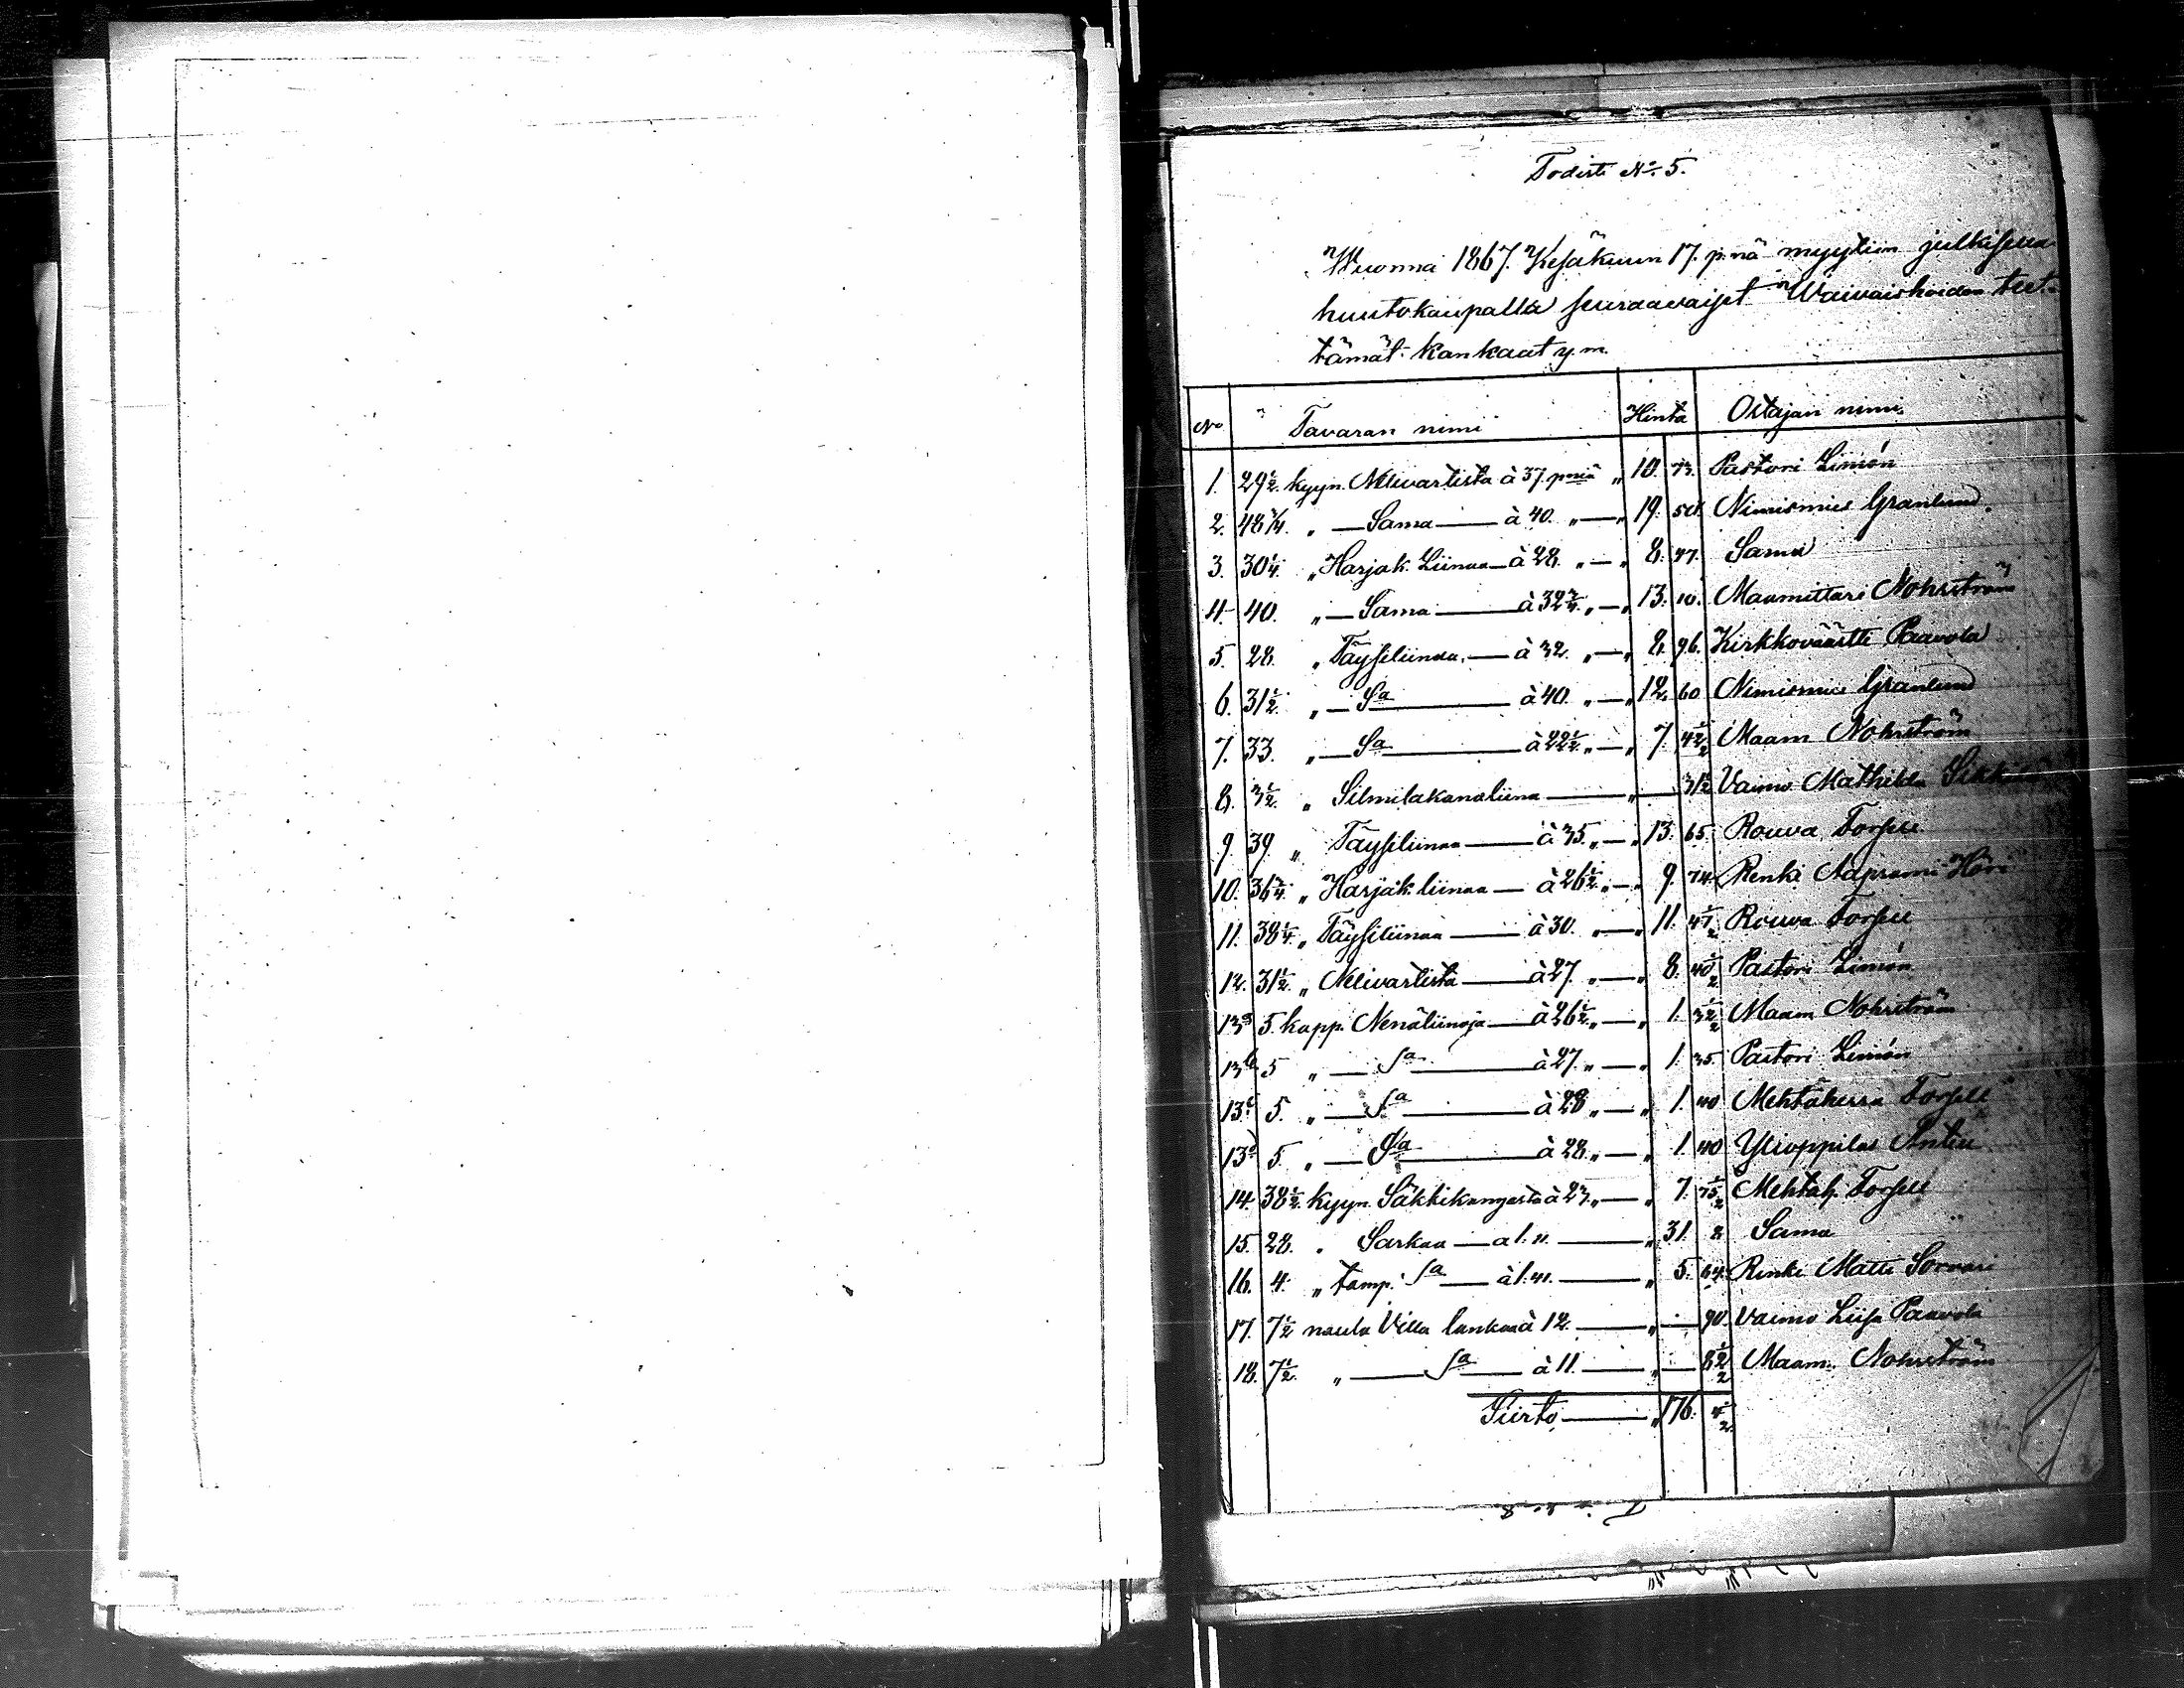 Todiste No 5.
Wuonna 1867. Kesäkuun 17. p:nä myytiin julkisella
huutokaupalla seuraavaiset Waivaishoidon teet-
tämät kankaat y.m.
No Tavaran nimi Hinta Ostajan nimi.
1. 29 1/2. kyyn. Nelivartista à 37. pniä „ 10. 73. Pastori Limón
2. 48 3/4. „ — Sama — à 40. „ — „ 19. 50. Nimismies Granlund.
3. 30 1/4. „ Harjak. Liinaa — à 28. „ — „ 8. 47. Sama
4. 40. „ — Sama — à 32 3/4. „ — „ 13. 10. Maamittari Nohrström
5. 28. „ Täysiliinaa. — à 32. „ — „ 8. 96. Kirkkoväärtti Paavola
6. 31 1/2. „ — Sa — à 40. „ — „ 12. 60 Nimismies Granlund
7. 33. „ — Sa — à 22 1/2. „ — „ 7. 42 1/2 Maam. Nohrström
8. 3 1/2. „ Silmilakanaliina — „ — 31 1/2 Vaimo Mathilda
9. 39. „ Täysiliinaa — à 35. „ — „ 13. 65. Rouva Forsell
10. 36 3/4. „ Harjak. liinaa — à 26 1/2. „ — „ 9. 74. Renki Aaprami
11. 38 1/4. „ Täysiliinaa — à 30. „ — „ 11. 47 1/2 Rouva Forsell
12. 31 1/2. „ Nelivartista — à 27. „ — „ 8. 40 1/2 Pastori Limón
13a 5. kapp. Nenäliinoja — à 26 1/2. „ — „ 1. 32 1/2 Maam. Nohrström
13b 5 „ — Sa — à 27. „ — „ 1. 35. Pastori Limón
13c 5. „ — Sa — à 28 „ — „ 1. 40 Mehtäherra Forsell
13d 5. „ — Sa — à 28. „ — „ 1. 40 Ylioppilas
14. 38 1/2. kyyn. Säkkikangasta à 23. „ — „ 7. 75 1/2 Mehtäh. Forsell
15. 28. „ Sarkaa — a 1. 11. — „ 31. 8 Sama
16. 4. „ tamp. Sa — à 1. 41. — „ 5. 64. Renki Matti Sorvari
17. 7 1/2 naula Villa lankaa à 12. — „ — 90. Vaimo Liisa Paavola
18. 7 1/2. „ — Sa — à 11. — „ — 82 1/2 Maam. Nohrström
Siirto — „ 176. 4 1/2